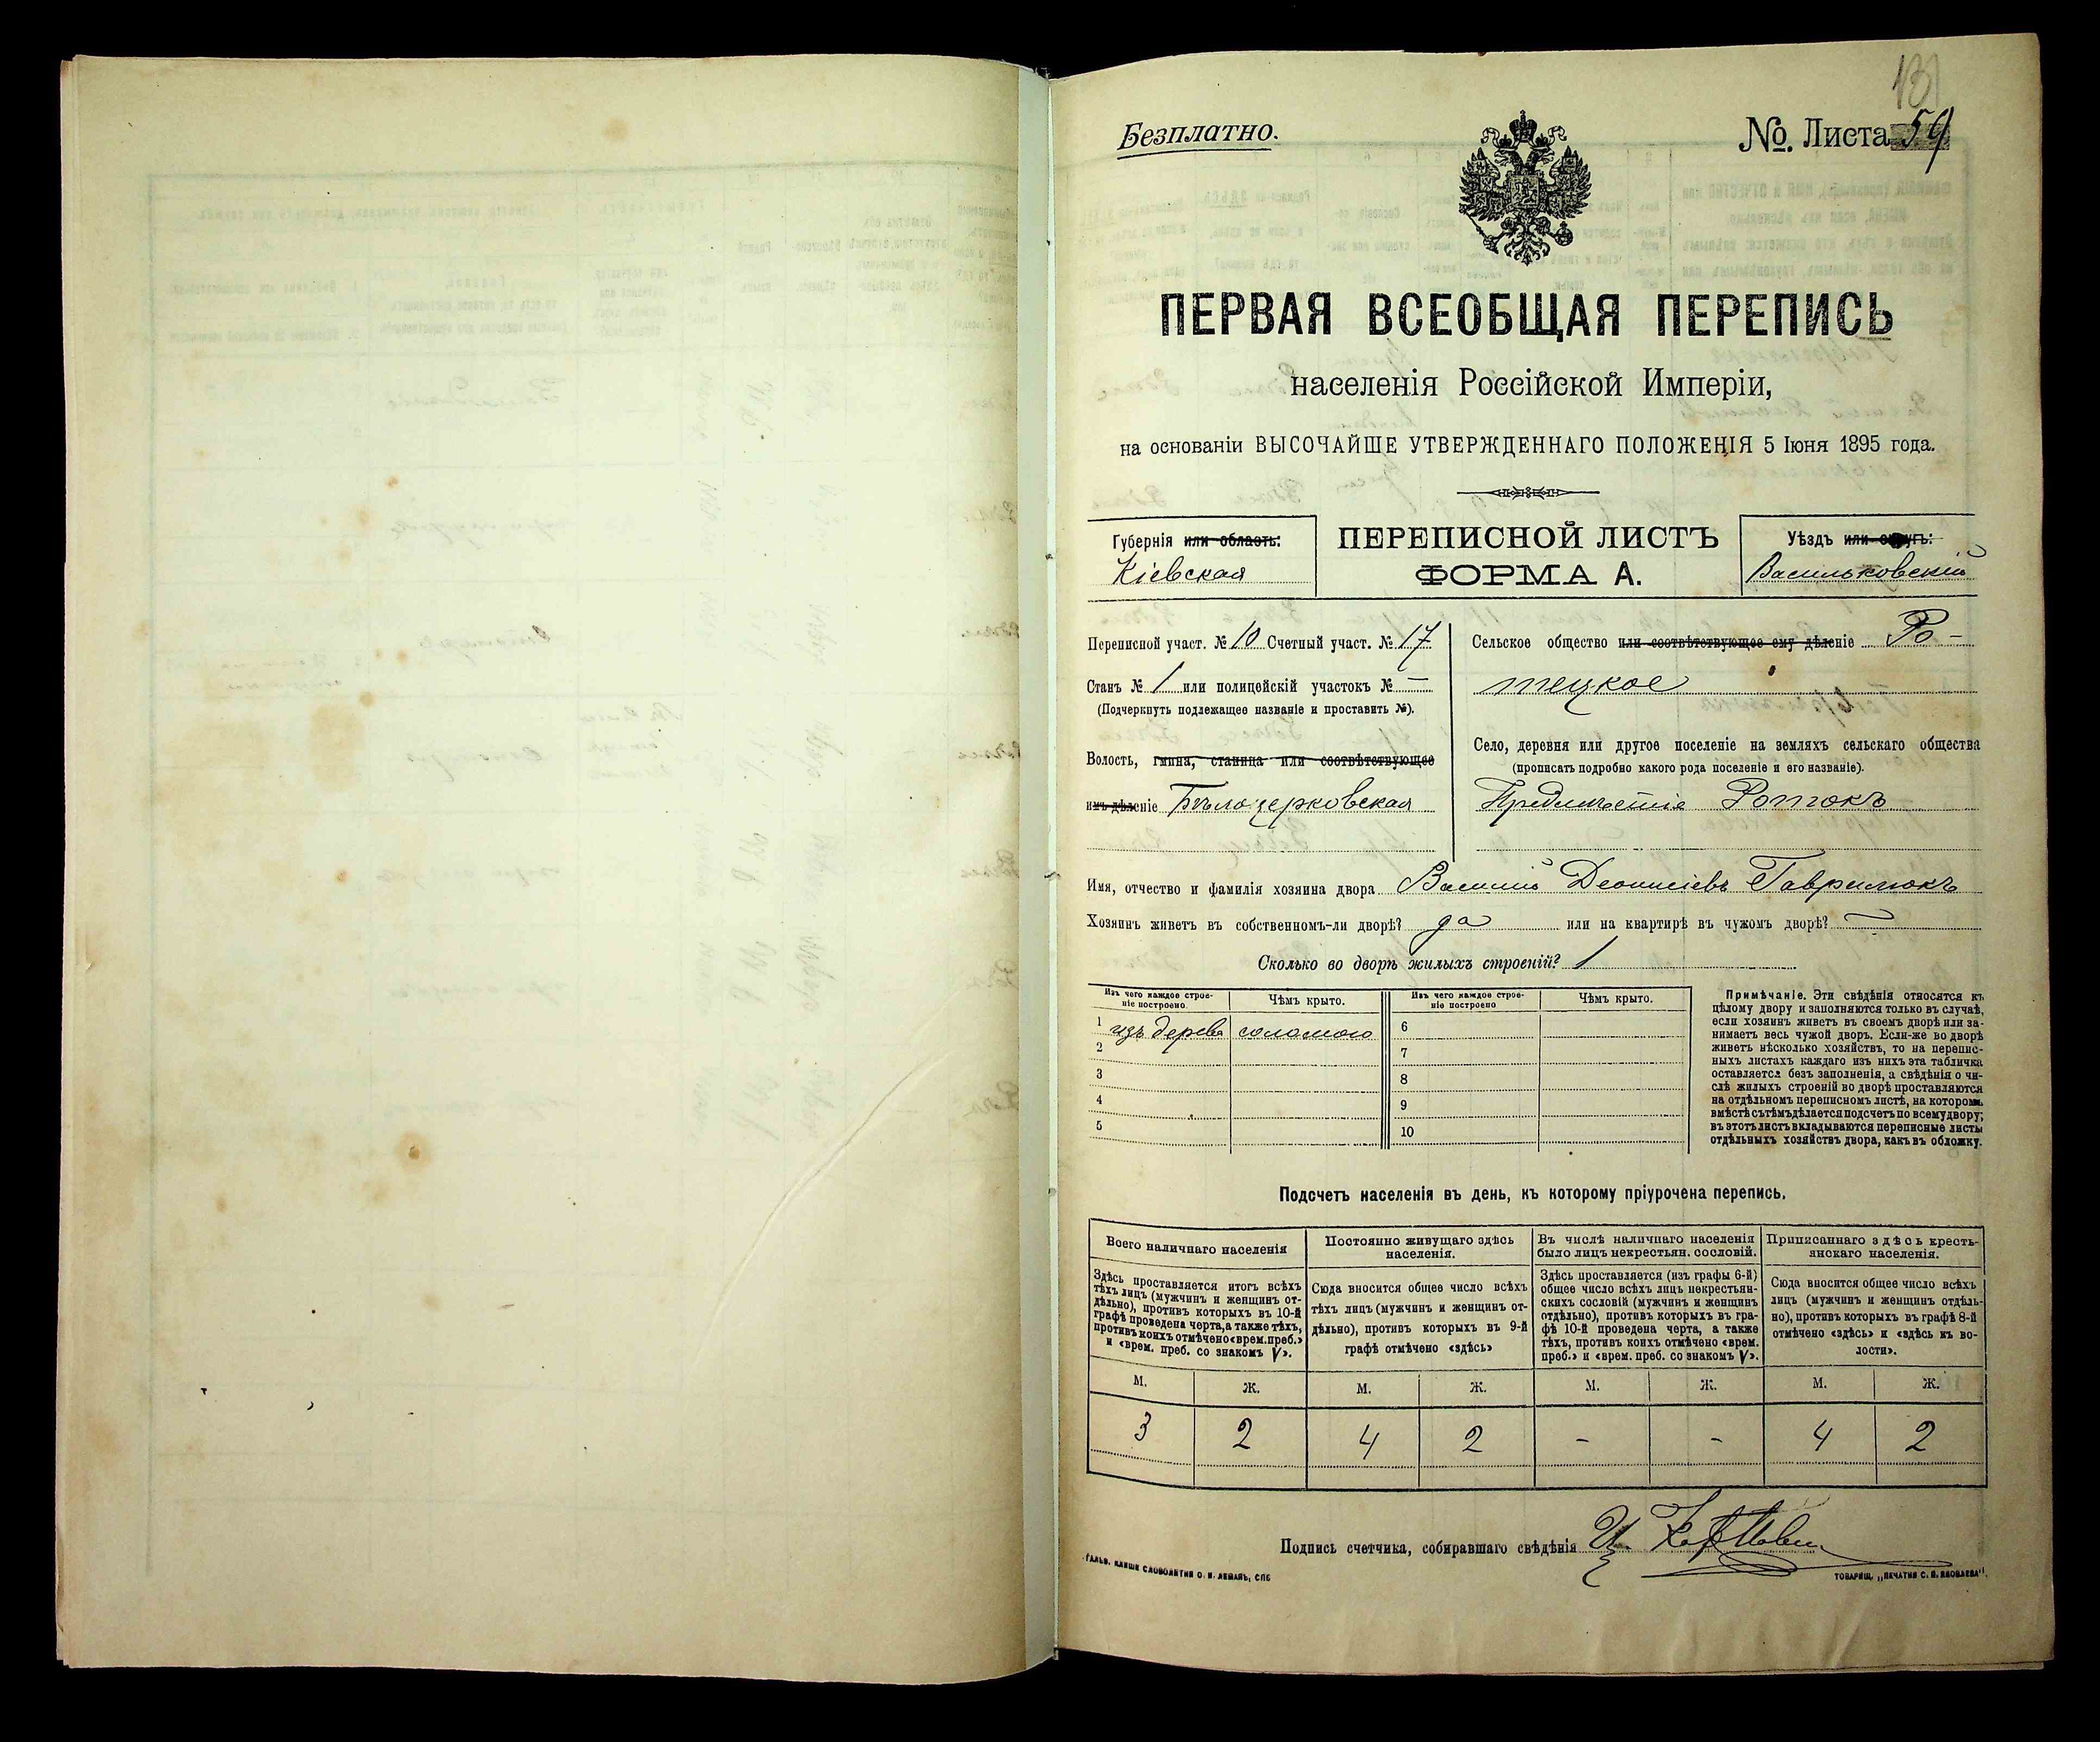 131
Безплатно.
№. Листа 59
ПЕРВАЯ ВСЕОБЩАЯ ПЕРЕПИСЬ
населенія Россійской Имперіи,
на основаніи ВЫСОЧАЙШЕ УТВЕРЖДЕННАГО ПОЛОЖЕНІЯ 5 Іюня 1895 года.
Губернія или область:
Кіевская
ПЕРЕПИСНОЙ ЛИСТЪ
ФОРМА А.
Уѣздъ или округъ:
Васильковскій
Переписной участ. № 10 Счетный участ. № 17
Станъ № 1 или полицейскій участокъ № —
(Подчеркнуть подлежащее названіе и проставить №).
Волость, гмина, станица или соотвѣтствующее
имъ дѣленіе Бѣлоцерковская
Сельское общество или соотвѣтствующее ему дѣленіе Ро-
тецкое
Село, деревня или другое поселеніе на земляхъ сельскаго общества
(прописать подробно какого рода поселеніе и его названіе).
Предмѣстіе Ротокъ
Имя, отчество и фамилія хозяина двора Василій Деонисіевъ Гаврилюкъ
Хозяинъ живетъ въ собственномъ-ли дворѣ? да или на квартирѣ въ чужомъ дворѣ? —
Сколько во дворѣ жилыхъ строеній? 1
Изъ чего каждое строе-
ніе построено.
Чѣмъ крыто.
Изъ чего каждое строе-
ніе построено
Чѣмъ крыто.
1 изъ дерева соломою 6
2 7
3 8
4 9
5 10
Примѣчаніе. Эти свѣдѣнія относятся къ
цѣлому двору и заполняются только въ случаѣ,
если хозяинъ живетъ въ своемъ дворѣ или за-
нимаетъ весь чужой дворъ. Если-же во дворѣ
живетъ нѣсколько хозяйствъ, то на перепис-
ныхъ листахъ каждаго изъ нихъ эта табличка
оставляется безъ заполненія, а свѣдѣнія о чи-
слѣ жилыхъ строеній во дворѣ проставляются
на отдѣльномъ переписномъ листѣ, на которомъ
вмѣстѣ съ тѣмъ дѣлается подсчетъ по всему двору;
въ этотъ листъ вкладываются переписные листы
отдѣльныхъ хозяйствъ двора, какъ въ обложку.
Подсчетъ населенія въ день, къ которому пріурочена перепись.
Всего наличнаго населенія
Здѣсь проставляется итогъ всѣхъ
тѣхъ лицъ (мужчинъ и женщинъ от-
дѣльно), противъ которыхъ въ 10-й
графѣ проведена черта, а также тѣхъ,
противъ коихъ отмѣчено «врем. преб.»
и «врем. преб. со знакомъ V».
Постоянно живущаго здѣсь
населенія.
Сюда вносится общее число всѣхъ
тѣхъ лицъ (мужчинъ и женщинъ от-
дѣльно), противъ которыхъ въ 9-й
графѣ отмѣчено «здѣсь»
Въ числѣ наличнаго населенія
было лицъ некрестьян. сословій.
Здѣсь проставляется (изъ графы 6-й)
общее число всѣхъ лицъ некрестьян-
скихъ сословій (мужчинъ и женщинъ
отдѣльно), противъ которыхъ въ гра-
фѣ 10-й проведена черта, а также
тѣхъ, противъ коихъ отмѣчено «врем.
преб.» и «врем. преб. со знакомъ V».
Приписаннаго здѣсь кресть-
янскаго населенія.
Сюда вносится общее число всѣхъ
лицъ (мужчинъ и женщинъ отдѣль-
но), противъ которыхъ въ графѣ 8-й
отмѣчено «здѣсь» и «здѣсь къ во-
лости».
М. Ж. М. Ж. М. Ж. М. Ж.
3 2 4 2 - - 4 2
Подпись счетчика, собиравшаго свѣдѣнія
ГАЛЬВ. КЛИШЕ СЛОВОЛИТНИ О. И. ЛЕМАНЪ, СПБ
ТОВАРИЩ. „ПЕЧАТНЯ С. П. ЯКОВЛЕВА".